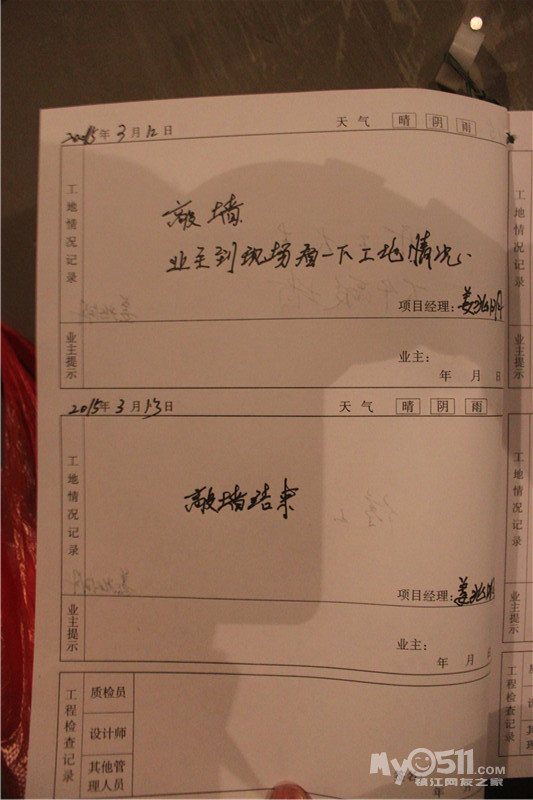 2015年3月12日 天气 晴 阴 雨
工地情况记录
敲墙
业主到现场看一下工地情况.
项目经理:
业主提示
业主:
年 月 日
2015年3月13日 天气 晴 阴 雨
工地情况记录
敲墙结束
项目经理:
业主提示
业主:
年 月 日
工程检查记录
质检员
设计师
其他管理人员
年
My0511.com
镇江网友之家